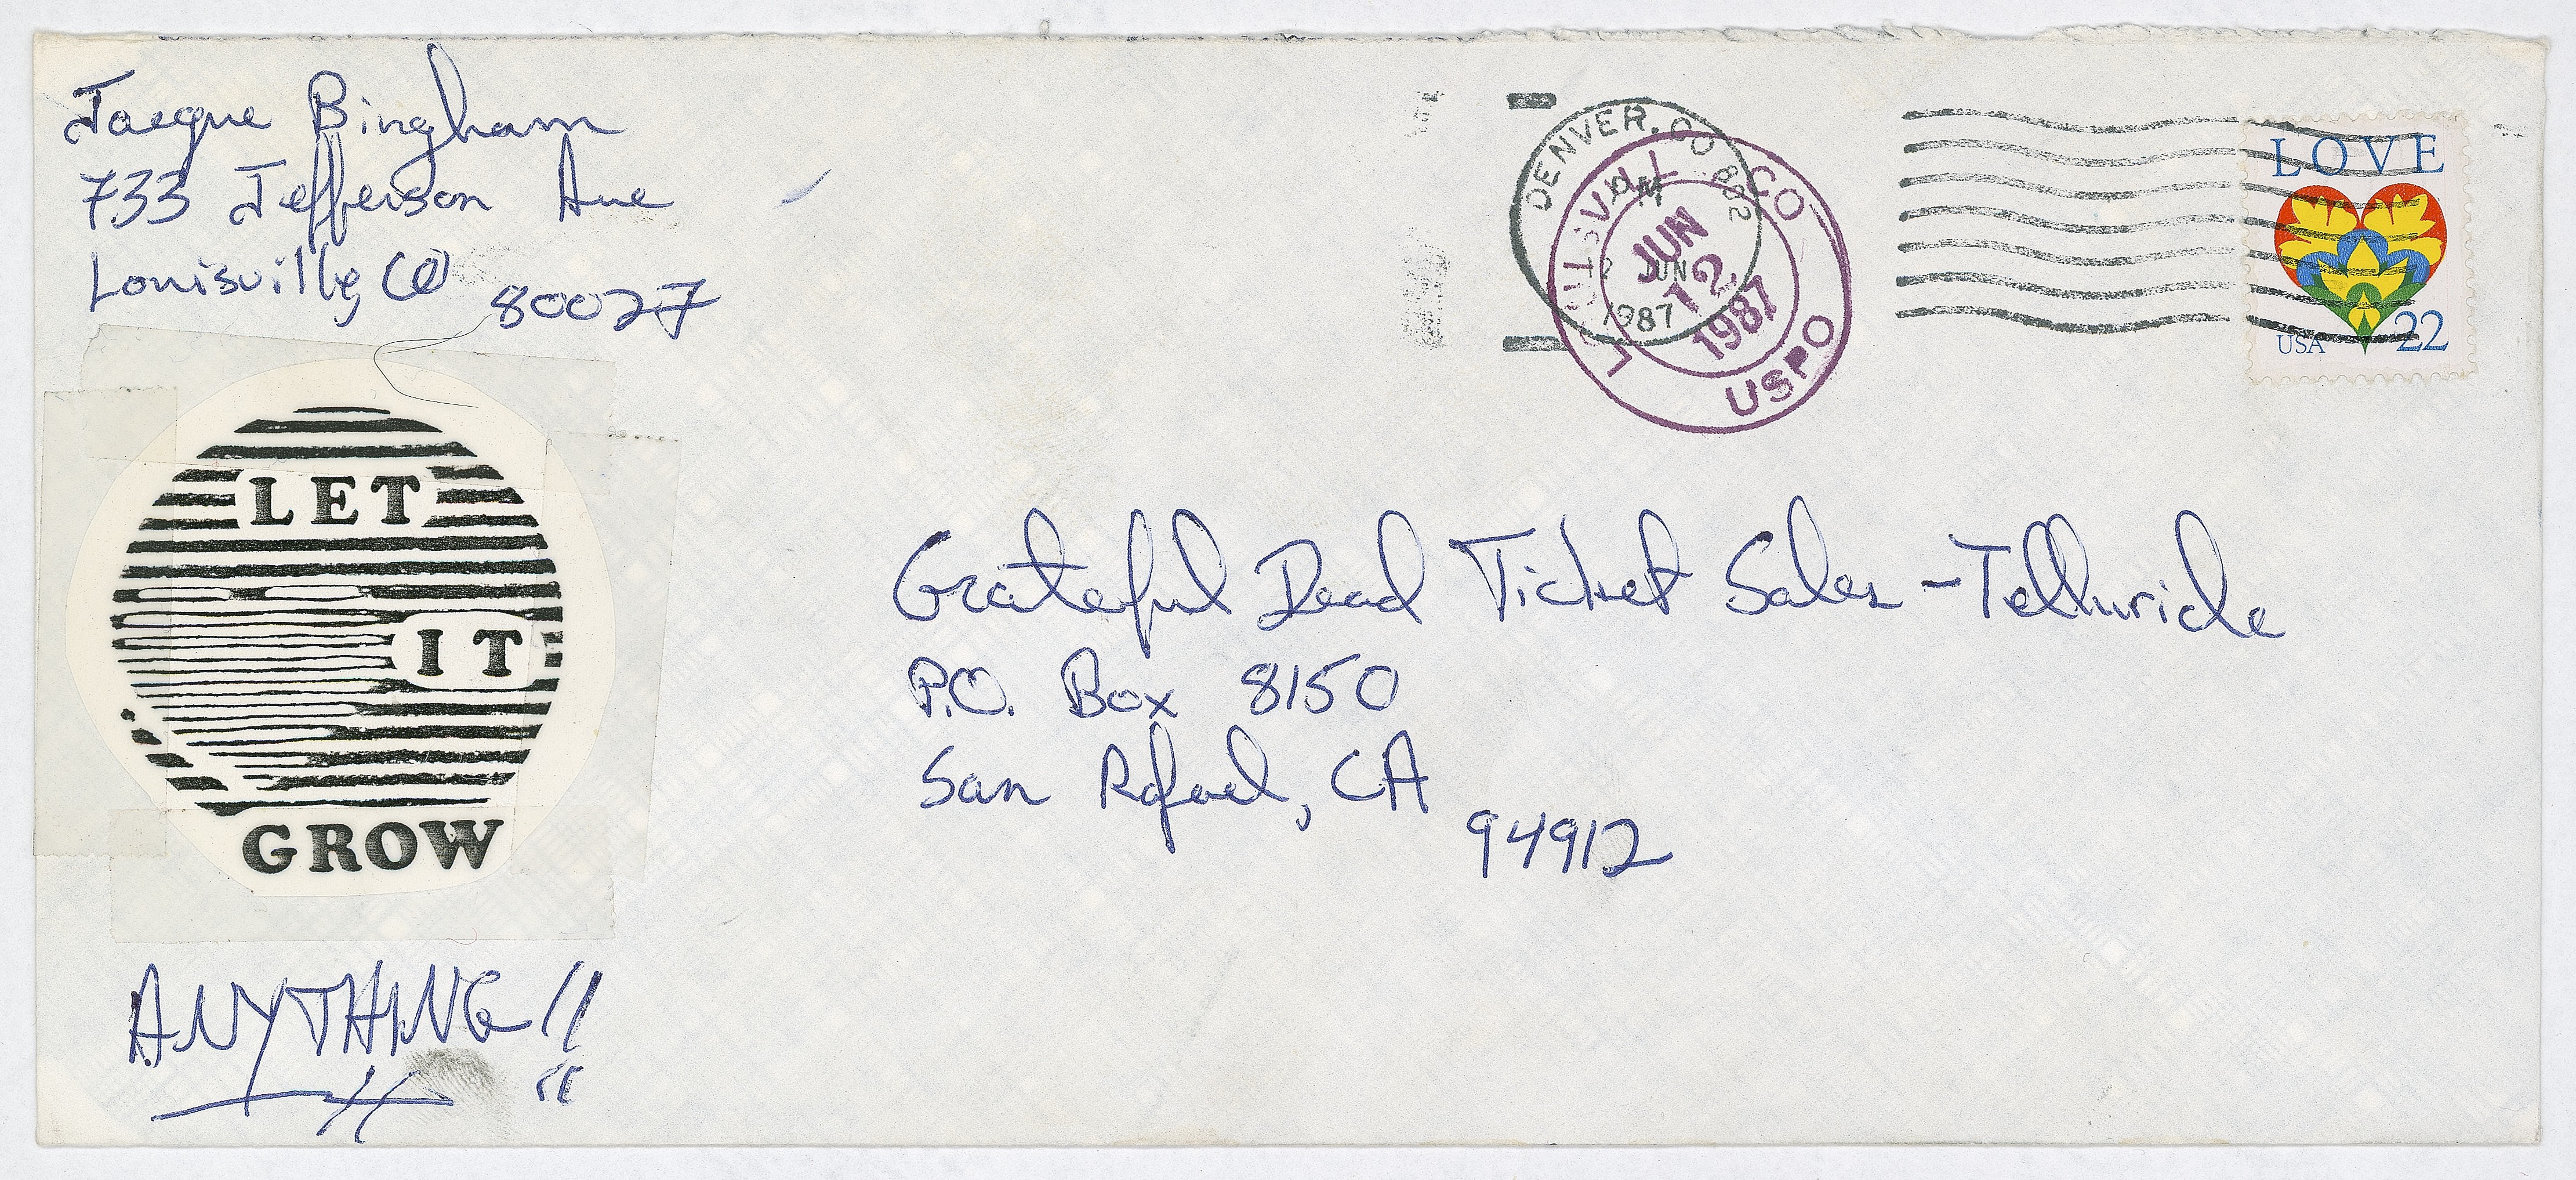 Jacque Bingham
733 Jefferson Ave
Louisville, CO
80027
DENVER, CO 802
PM
JUN
1987
LOUISVILLE CO
JUN
12
1987
USPO
LOVE
USA 22
LET
IT
GROW
Grateful Dead Ticket Sales - Telluride
P.O. Box 8150
San Rafael, CA
94912
ANYTHING!!